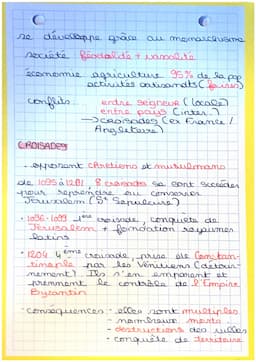 se développe grâce au monarchisme
société féodalité + vassalité
économie agriculture 95% de la pop
activités artisanats (foires)
conflits : entre seigneur (locale)
entre pays (inter.)
→ croisades (ex France /
Angleterre)
CROISADES
• opposent chrétiens et musulmans
de 1095 à 1291, 8 croisades se sont succédées
pour reprendre ou conserver
Jérusalem (St Sépulcre)
• 1096-1099 1ère croisade, conquête de
Jérusalem + fondation royaumes
latins
• 1204 4ème croisade, prise de Constan-
tinople par les Vénitiens (détour-
nement) Ils s'en emparent et
prennent le contrôle de l'Empire
Byzantin
• conséquences - elles sont multiples
- nombreux morts
- destructions des villes
- conquête de territoire